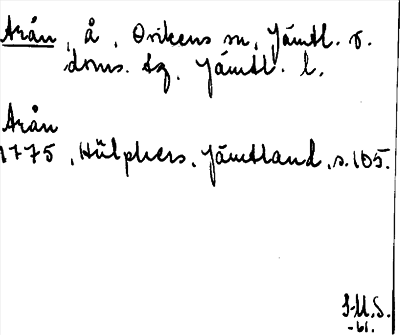 Arån, å, Ovikens sn, Jämtl. s.
doms. tg, Jämtl. l.
Arån
1775, Hülphers, Jämtland, s. 105.
S.U.S.
-61.